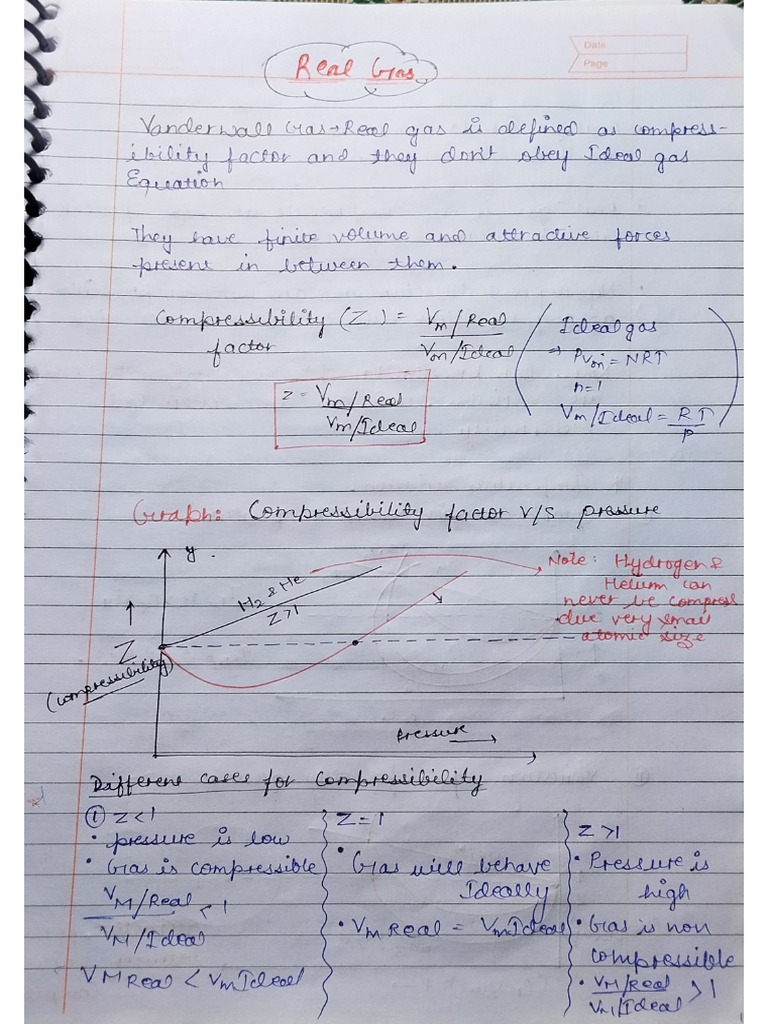 Date
Page
Real Gas
Vanderwall Gas→Real gas is defined as compress-
ibility factor and they don't obey Ideal gas
Equation
They have finite volume and attractive forces
present in between them.
Compressibility (Z) = Vm/Real
factor Vm/Ideal
Ideal gas
⇒ PVm = NRT
n=1
Vm/Ideal = RT
P
Z = Vm/Real
Vm/Ideal
Graph: Compressibility factor v/s pressure
y
Note: Hydrogen &
Helium can
never be compress
due very small
atomic size
H2 & He
Z>1
Z
(compressibility)
Pressure
Different cases for compressibility
① Z<1
• pressure is low
• Gas is compressible
VM/Real < 1
VM/Ideal
VM Real < Vm Ideal
Z=1
• Gas will behave
Ideally
• Vm Real = Vm Ideal
Z>1
• Pressure is
high
• Gas is non
compressible
• VM/Real > 1
VM/Ideal